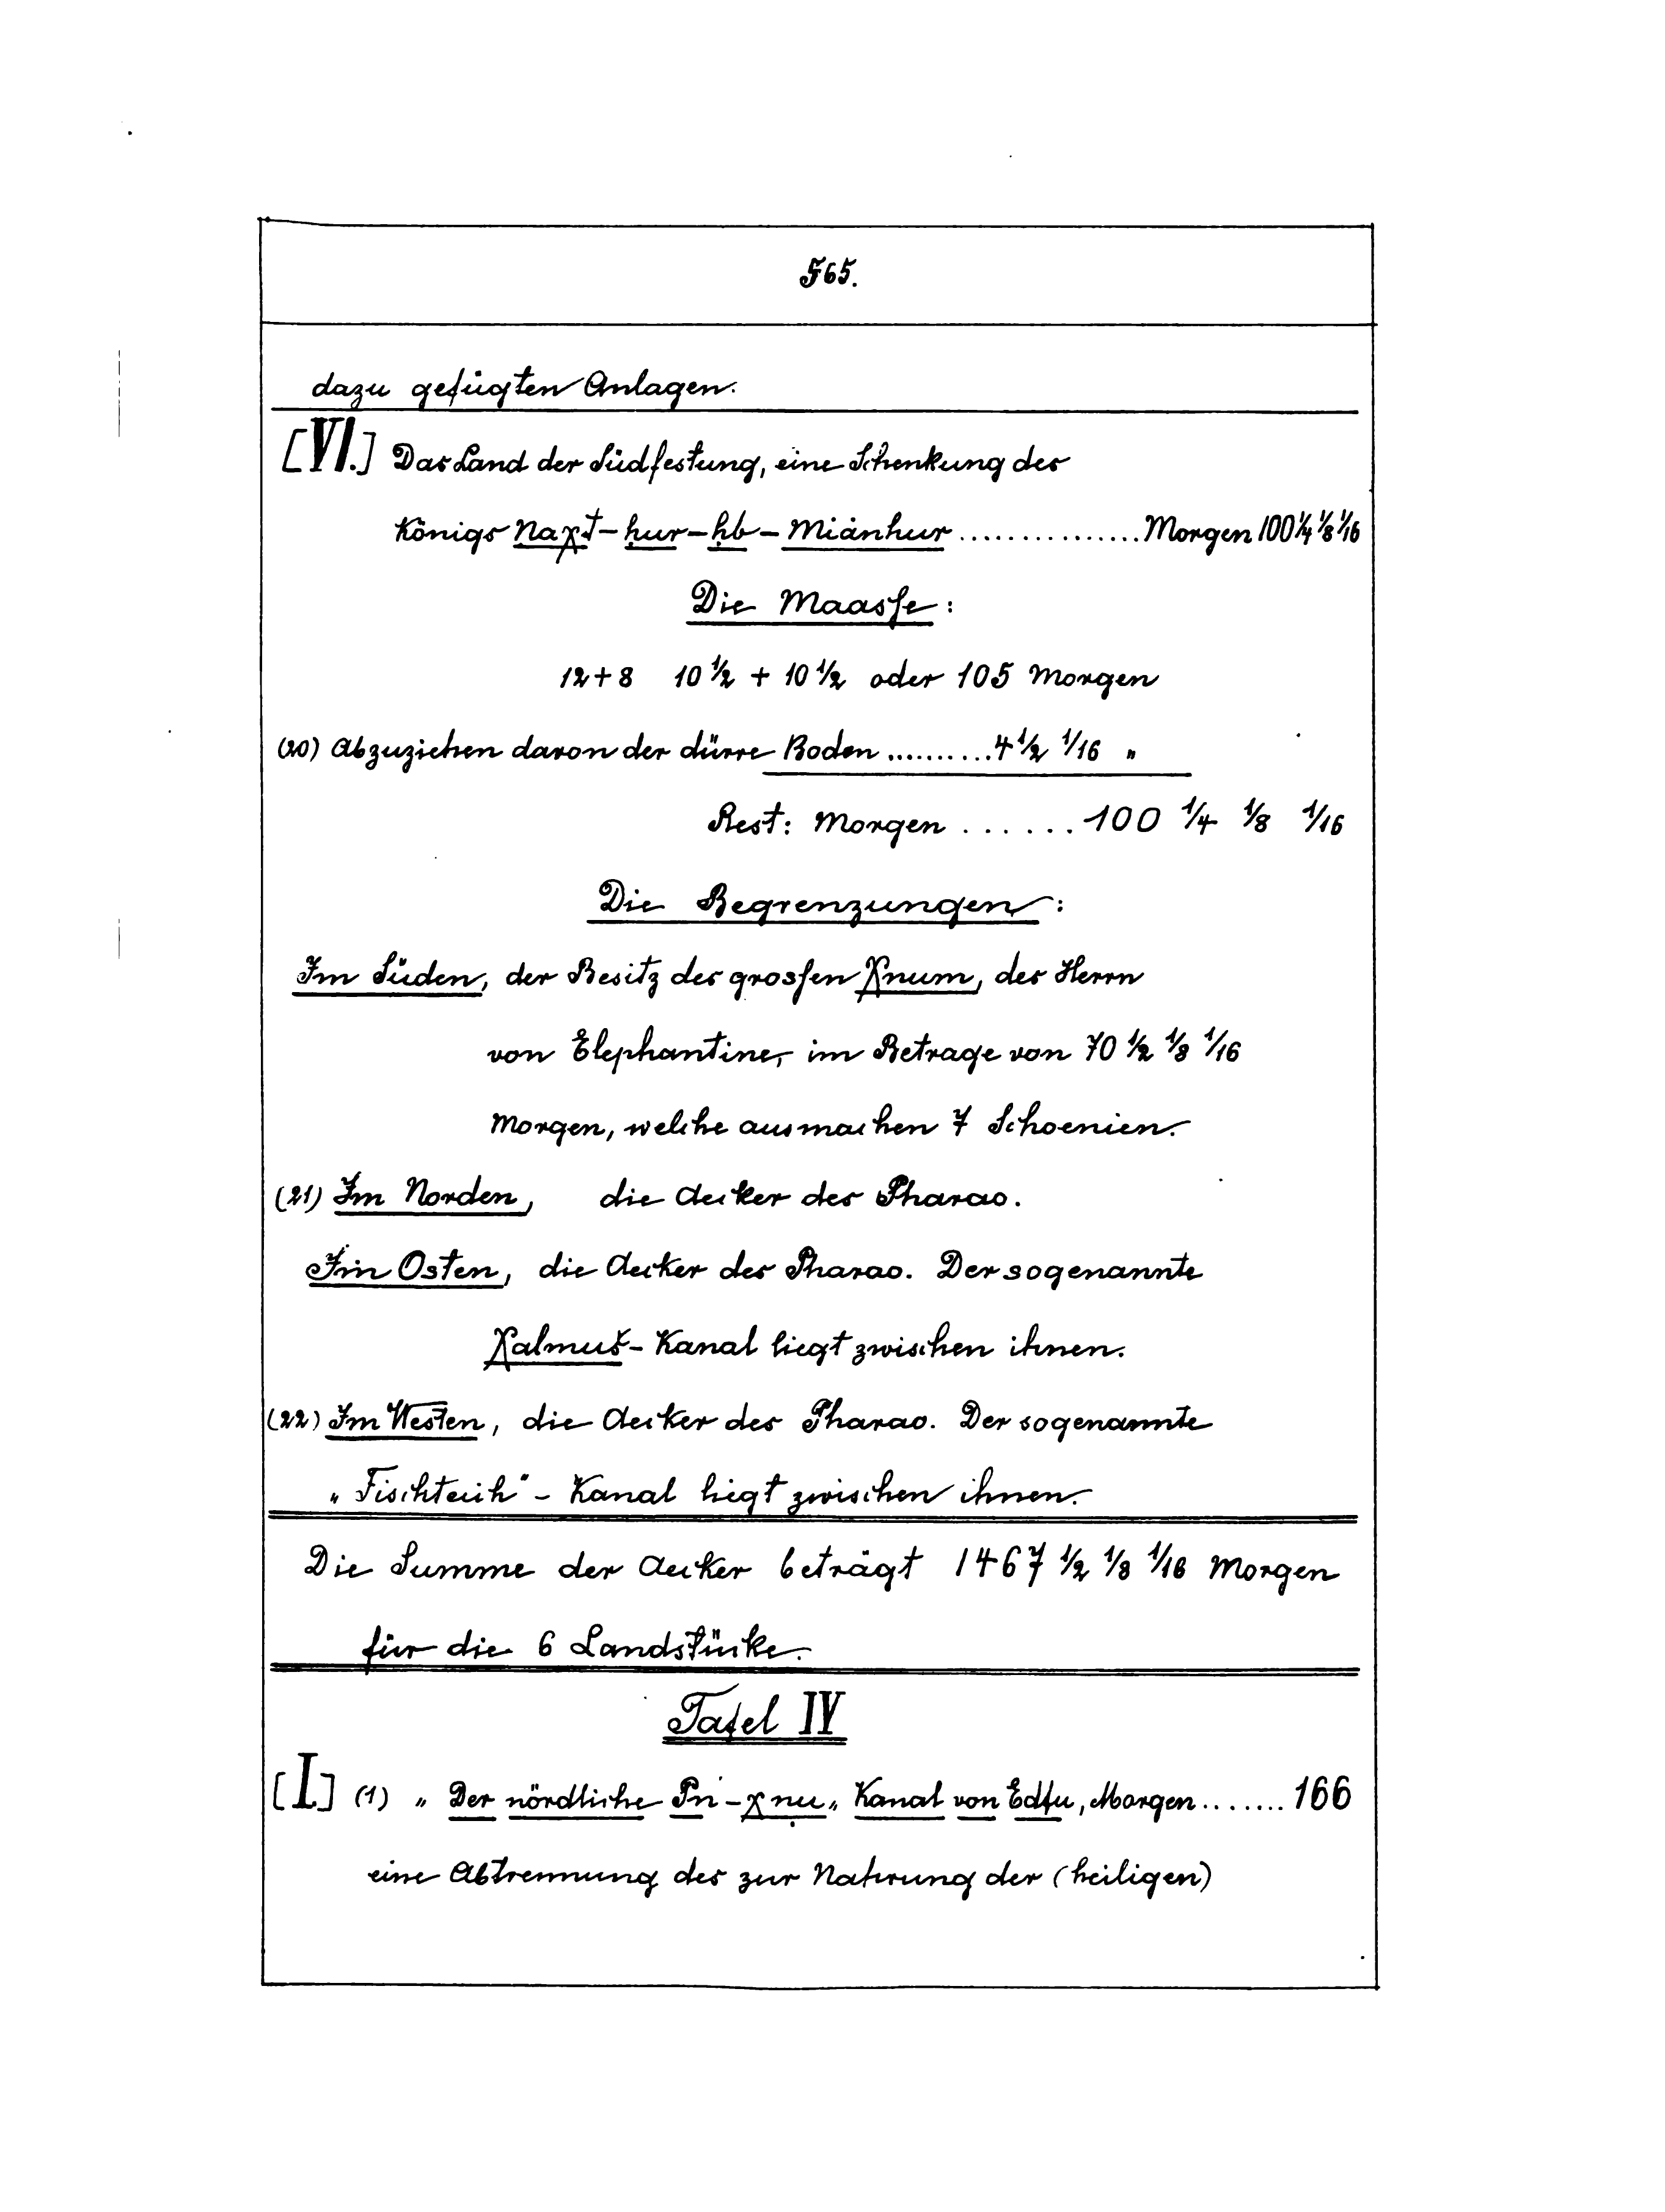 565.
dazu gefügten Anlagen.
[VI.] Das Land der Südfestung, eine Schenkung des
Königs Naχt-ḥur-ḥb-Miȧnhur ............... Morgen 100 1/4 1/8 1/16
Die Maasse:
12+8 10 1/2 + 10 1/2 oder 105 Morgen
(20) Abzuziehen davon der dürre Boden .......... 4 1/2 1/16 "
Rest: Morgen ...... 100 1/4 1/8 1/16
Die Begrenzungen:
Im Süden, der Besitz des grossen Xnum, des Herrn
von Elephantine, im Betrage von 70 1/2 1/8 1/16
Morgen, welche ausmachen 7 Schoenien.
(21) Im Norden, die Aecker des Pharao.
Im Osten, die Aecker des Pharao. Der sogenannte
Xalmus-Kanal liegt zwischen ihnen.
(22) Im Westen, die Aecker des Pharao. Der sogenannte
„Fischteich"-Kanal liegt zwischen ihnen.
Die Summe der Aecker beträgt 1467 1/2 1/8 1/16 Morgen
für die 6 Landstücke.
Tafel IV
[I.] (1) „Der nördliche Pn-χnu„ Kanal von Edfu, Morgen ....... 166
eine Abtrennung des zur Nahrung der (heiligen)